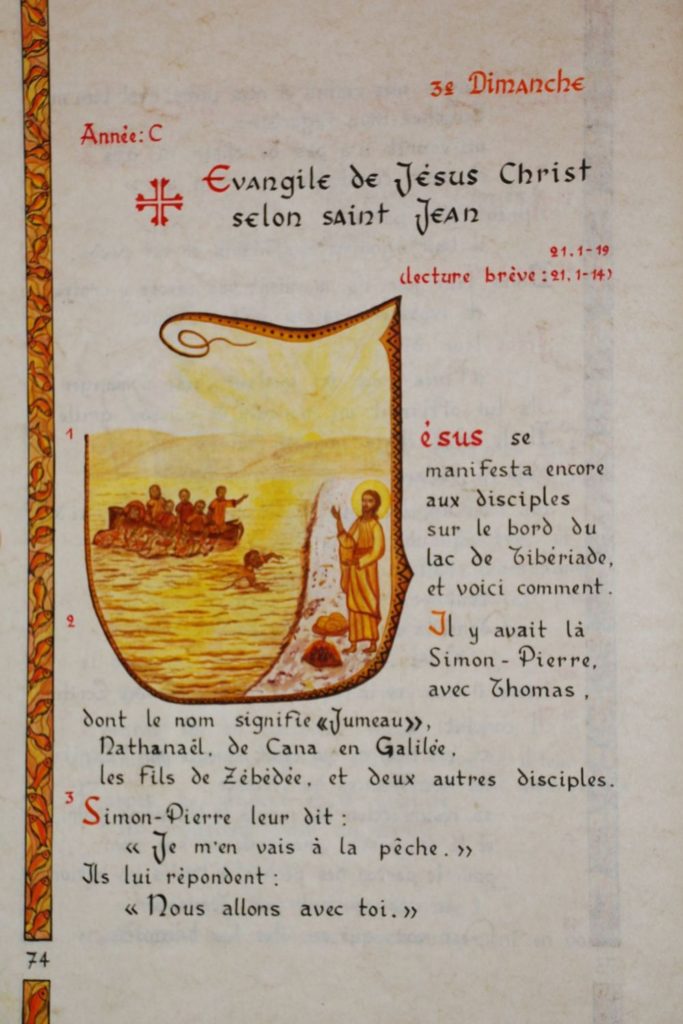 3e Dimanche
Année: C
Evangile de Jésus Christ
selon saint Jean
21. 1-19
(lecture brève : 21. 1-14)
1 Jésus se
manifesta encore
aux disciples
sur le bord du
lac de Tibériade,
et voici comment.
2 Il y avait là
Simon - Pierre,
avec Thomas,
dont le nom signifie «Jumeau»,
Nathanaël, de Cana en Galilée,
les fils de Zébédée, et deux autres disciples.
3 Simon-Pierre leur dit :
« Je m'en vais à la pêche. »
Ils lui répondent :
« Nous allons avec toi. »
74